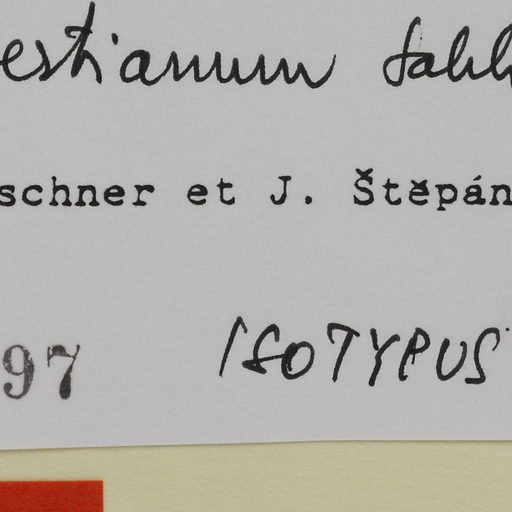 estianum Dahl
schner et J. Štěpán
97
ISOTYPUS